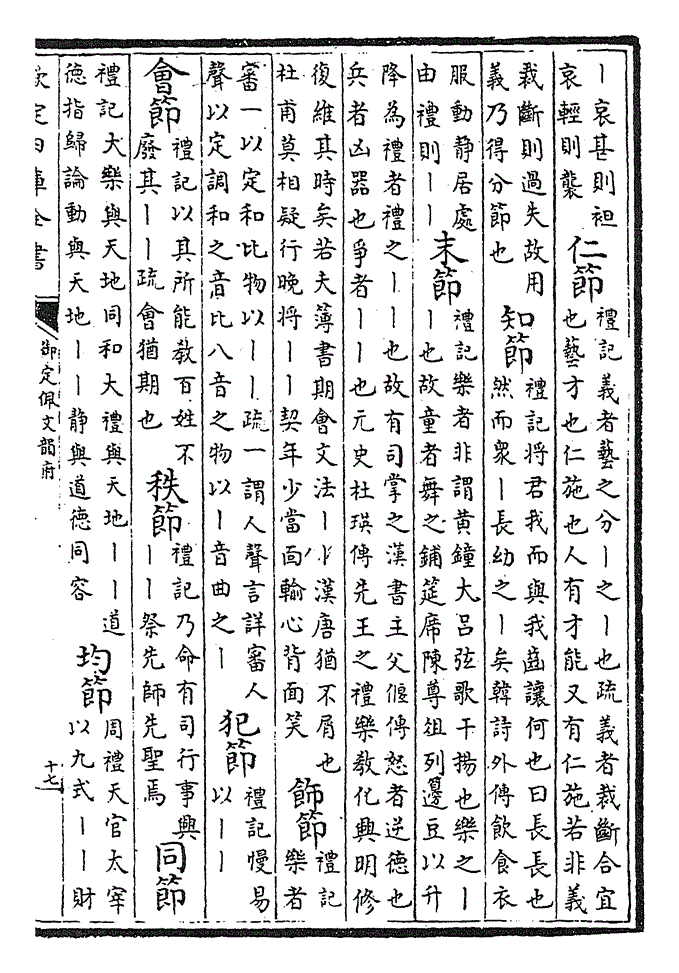 ｜哀甚則袒
哀輕則襲
仁節
禮記義者藝之分｜之｜也疏義者裁斷合宜
也藝才也仁施也人有才能又有仁施若非義
裁斷則過失故用
義乃得分節也
知節
禮記將君我而與我齒讓何也曰長長也
然而衆｜長幼之｜矣韓詩外傳飲食衣
服動静居處
由禮則｜｜
末節
禮記樂者非謂黄鐘大吕弦歌干揚也樂之｜
｜也故童者舞之鋪筵席陳尊俎列籩豆以升
降為禮者禮之｜｜也故有司掌之漢書主父偃傳怒者逆德也
兵者凶器也爭者｜｜也元史杜瑛傳先王之禮樂教化興明修
復維其時矣若夫薄書期會文法｜小漢唐猶不屑也
杜甫莫相疑行晚將｜｜契年少當面輸心背面笑
飾節
禮記
樂者
審一以定和比物以｜｜疏一謂人聲言詳審人
聲以定調和之音比八音之物以｜音曲之｜
犯節
禮記慢易
以｜｜
會節
禮記以其所能教百姓不
廢其｜｜疏會猶期也
秩節
禮記乃命有司行事興
｜｜祭先師先聖焉
同節
禮記大樂與天地同和大禮與天地｜｜道
德指歸論動與天地｜｜静與道德同容
均節
周禮天官太宰
以九式｜｜財
欽定四庫全書
御定佩文韻府
十七